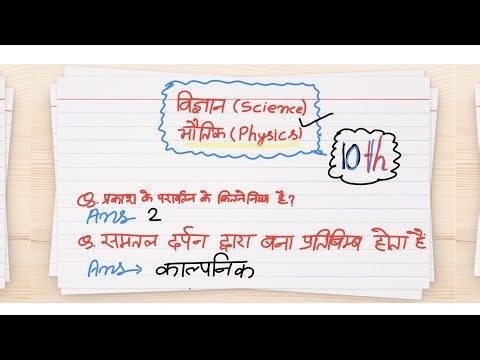 विज्ञान (Science)
भौतिक (Physics)
10th
Q. प्रकाश के परावर्तन के कितने नियम है?
Ans 2
Q. समतल दर्पन द्वारा बना प्रतिबिम्ब होता है
Ans → काल्पनिक